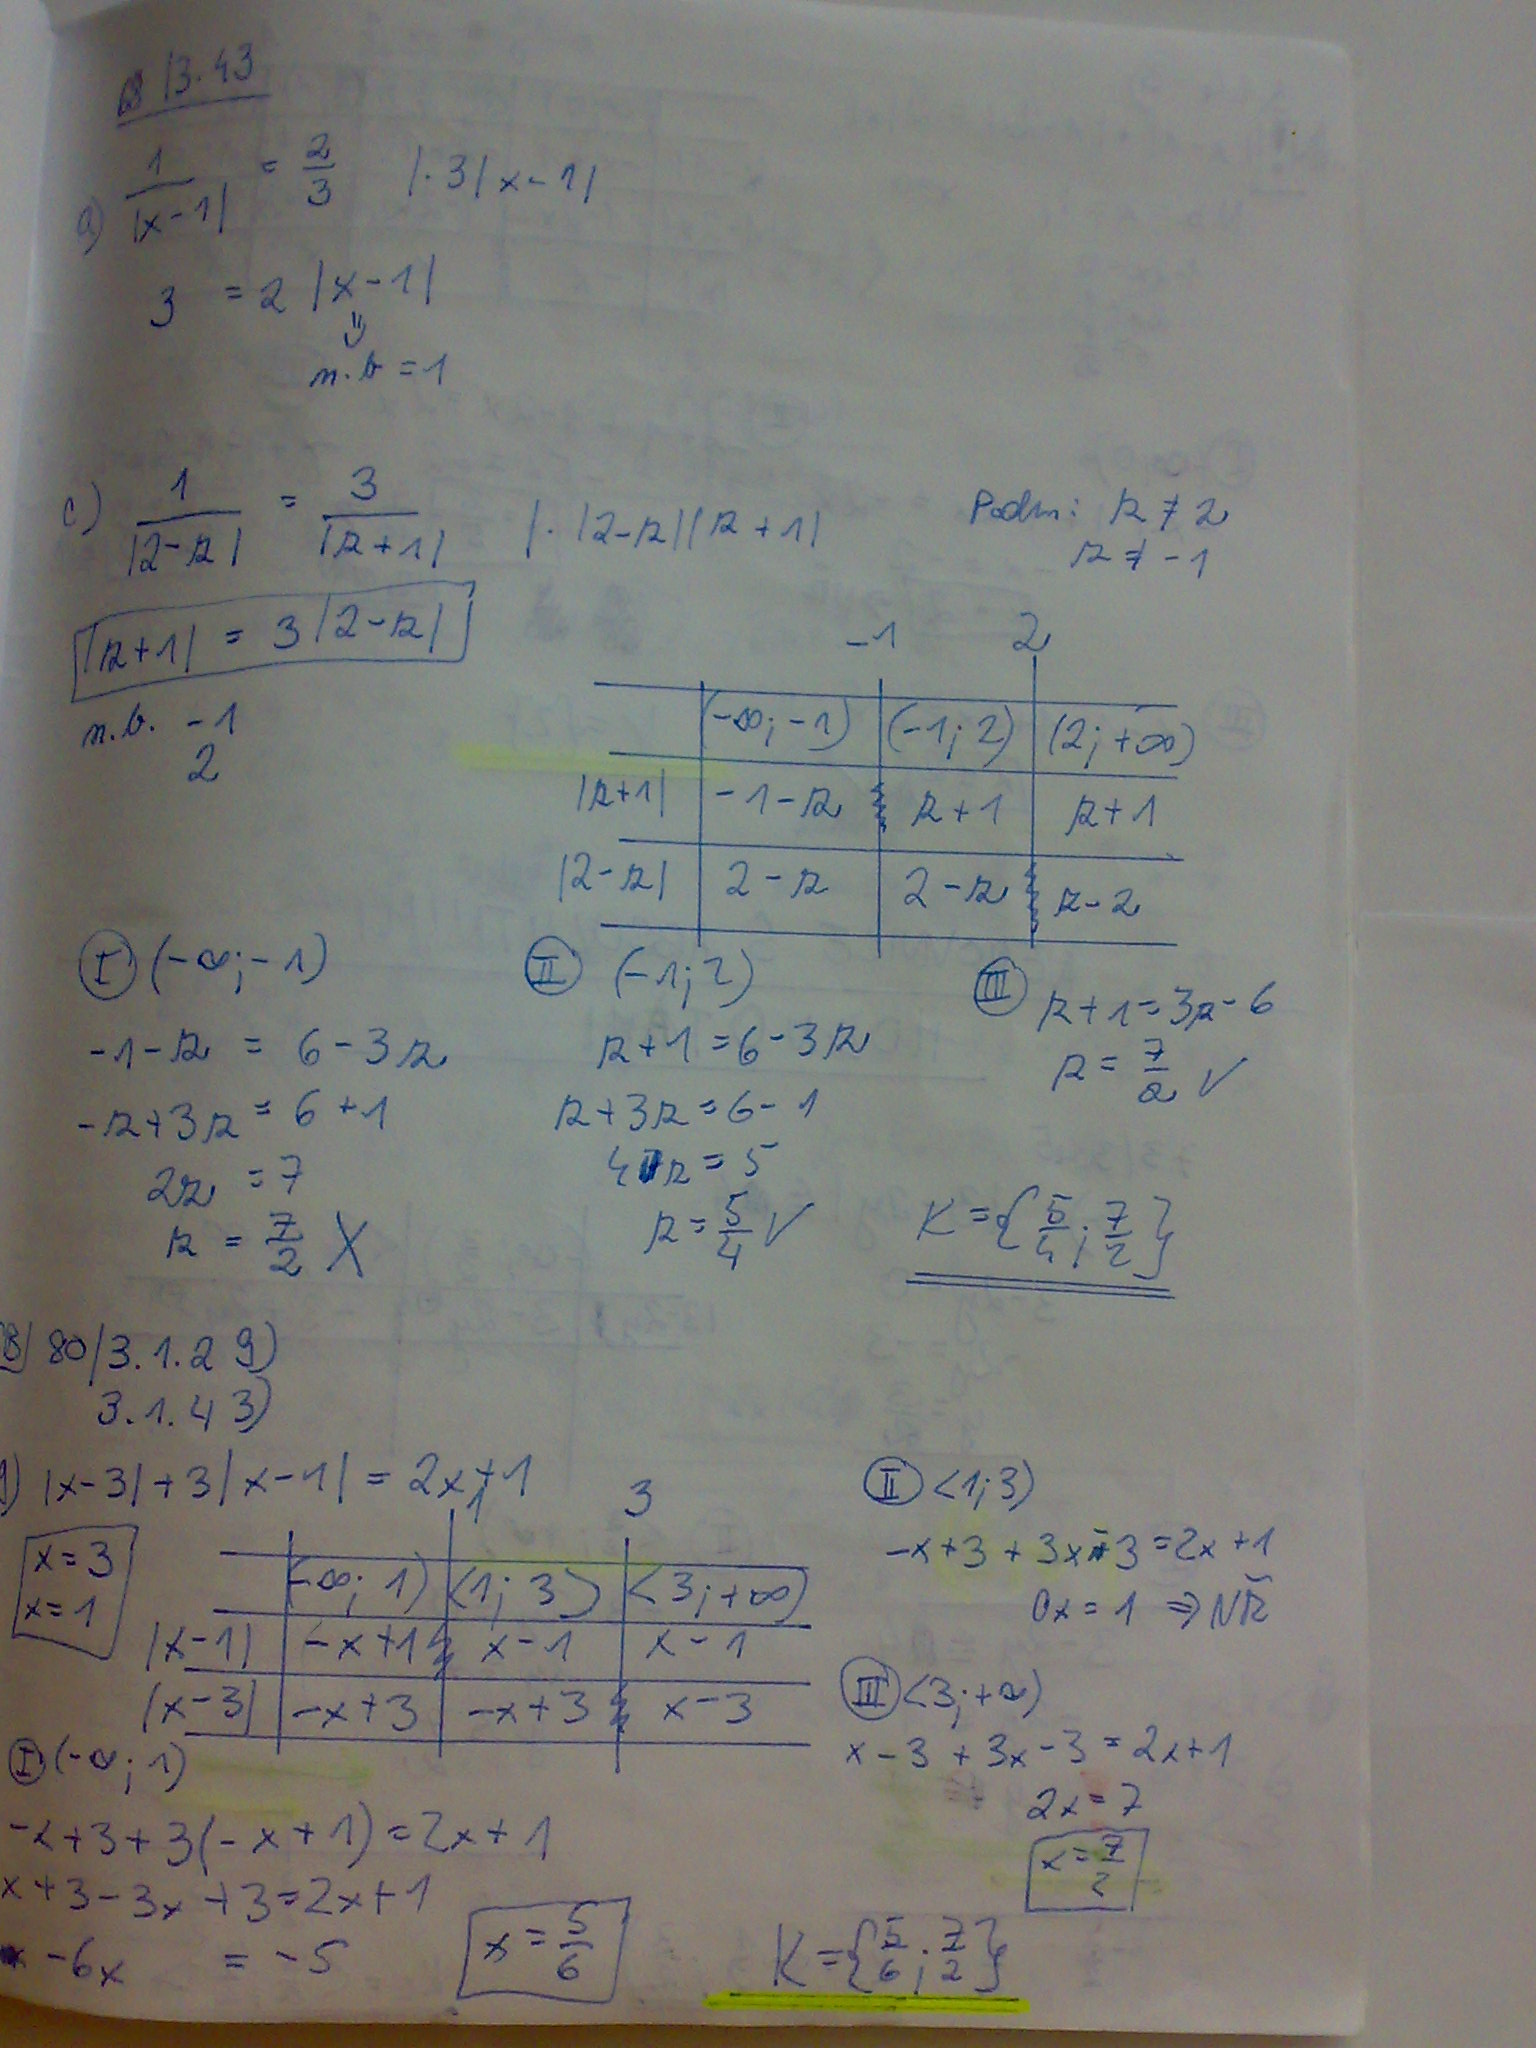 13.43
a) 1/|x-1| = 2/3 |·3|x-1|
3 = 2|x-1|
n.b = 1
c) 1/|2-r| = 3/|r+1| |·|2-r||r+1| Podm: r ≠ 2
r ≠ -1
|r+1| = 3|2-r|
n.b. -1
2
-1 2
(-∞; -1) (-1; 2) (2; +∞)
|r+1| -1-r r+1 r+1
|2-r| 2-r 2-r r-2
I (-∞; -1)
-1-r = 6-3r
-r+3r = 6+1
2r = 7
r = 7/2 X
II (-1; 2)
r+1 = 6-3r
r+3r = 6-1
4r = 5
r = 5/4 ✓
III r+1 = 3r-6
r = 7/2 ✓
K = {5/4; 7/2}
80/3.1.2 9)
3.1.4 3)
9) |x-3|+3|x-1| = 2x+1
x = 3
x = 1
1 3
(-∞; 1) <1; 3) <3; +∞)
|x-1| -x+1 x-1 x-1
|x-3| -x+3 -x+3 x-3
I (-∞; 1)
-x+3+3(-x+1) = 2x+1
x+3-3x+3 = 2x+1
-6x = -5
x = 5/6
II <1; 3)
-x+3+3x-3 = 2x+1
0x = 1 ⇒ NŘ
III <3; +∞)
x-3+3x-3 = 2x+1
2x = 7
x = 7/2
K = {5/6; 7/2}